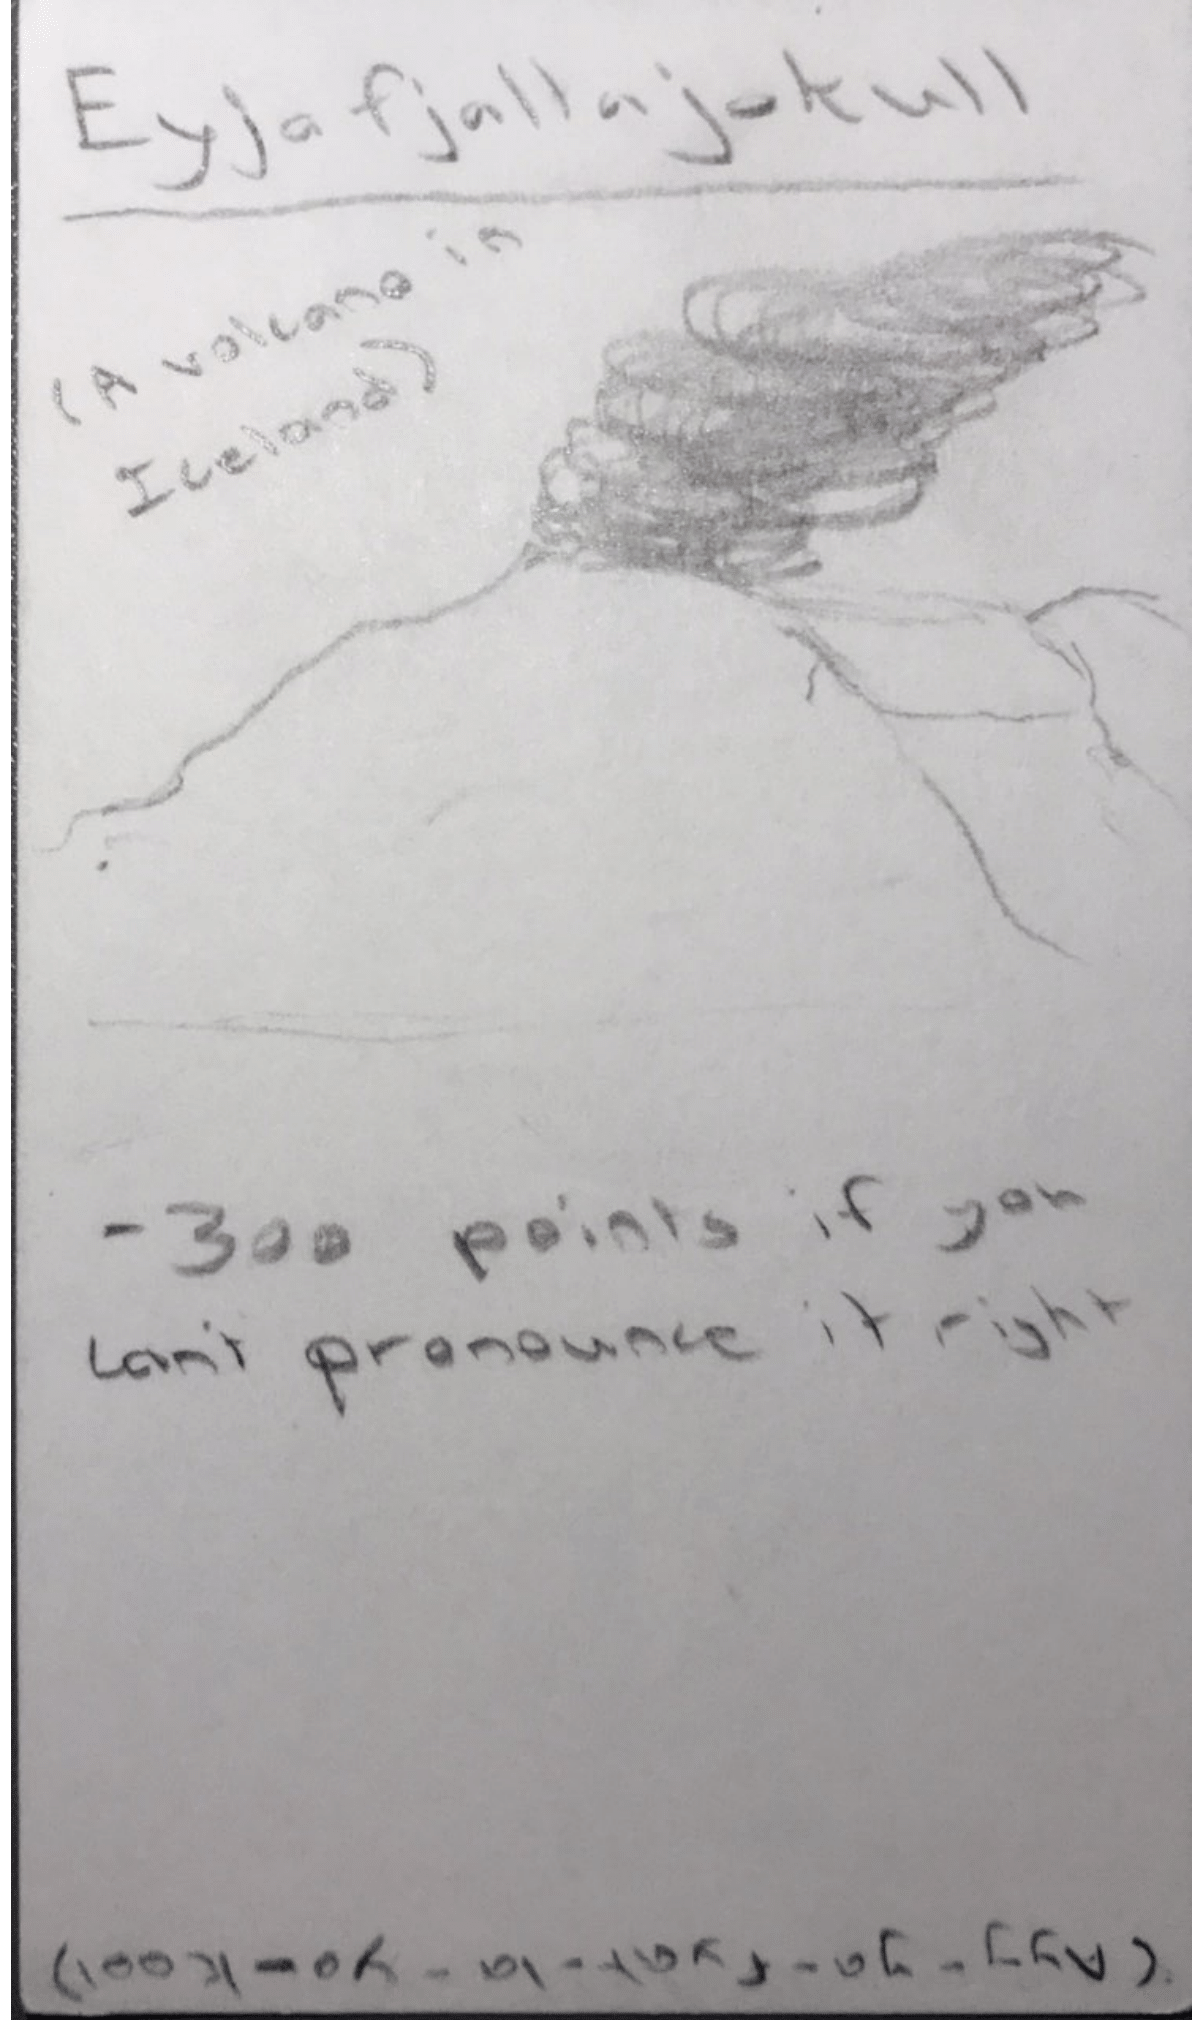 Eyjafjallajokull
(A volcano in
Iceland)
-300 points if you
can't pronounce it right
(Ayy-ya-fyat-la-yo-kool)